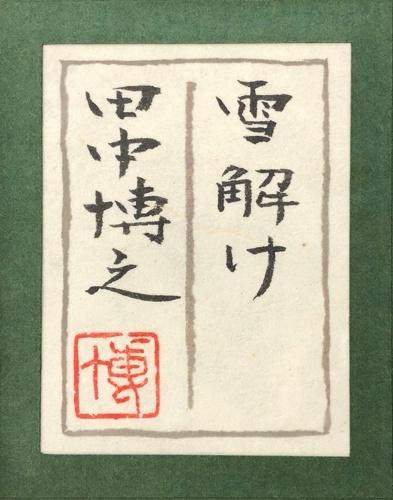 雪解け
田中博之
博